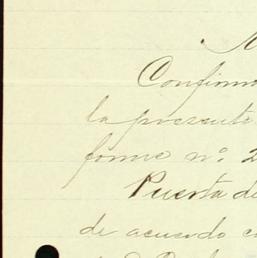 Confirma
la presente
forme nº 2
Puerta de
de acuerdo c